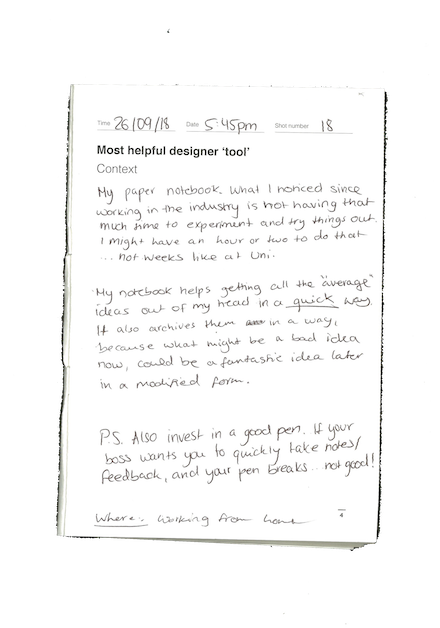 Time 26/09/18 Date 5:45pm Shot number 18
Most helpful designer 'tool'
Context
My paper notebook. What I noticed since
working in the industry is not having that
much time to experiment and try things out.
I might have an hour or two to do that
... not weeks like at Uni.
My notebook helps getting all the "average"
ideas out of my head in a quick way.
It also archives them in a way,
because what might be a bad idea
now, could be a fantastic idea later
in a modified form.
P.S. Also invest in a good pen. If your
boss wants you to quickly take notes/
feedback, and your pen breaks... not good!
Where: Working from home
4